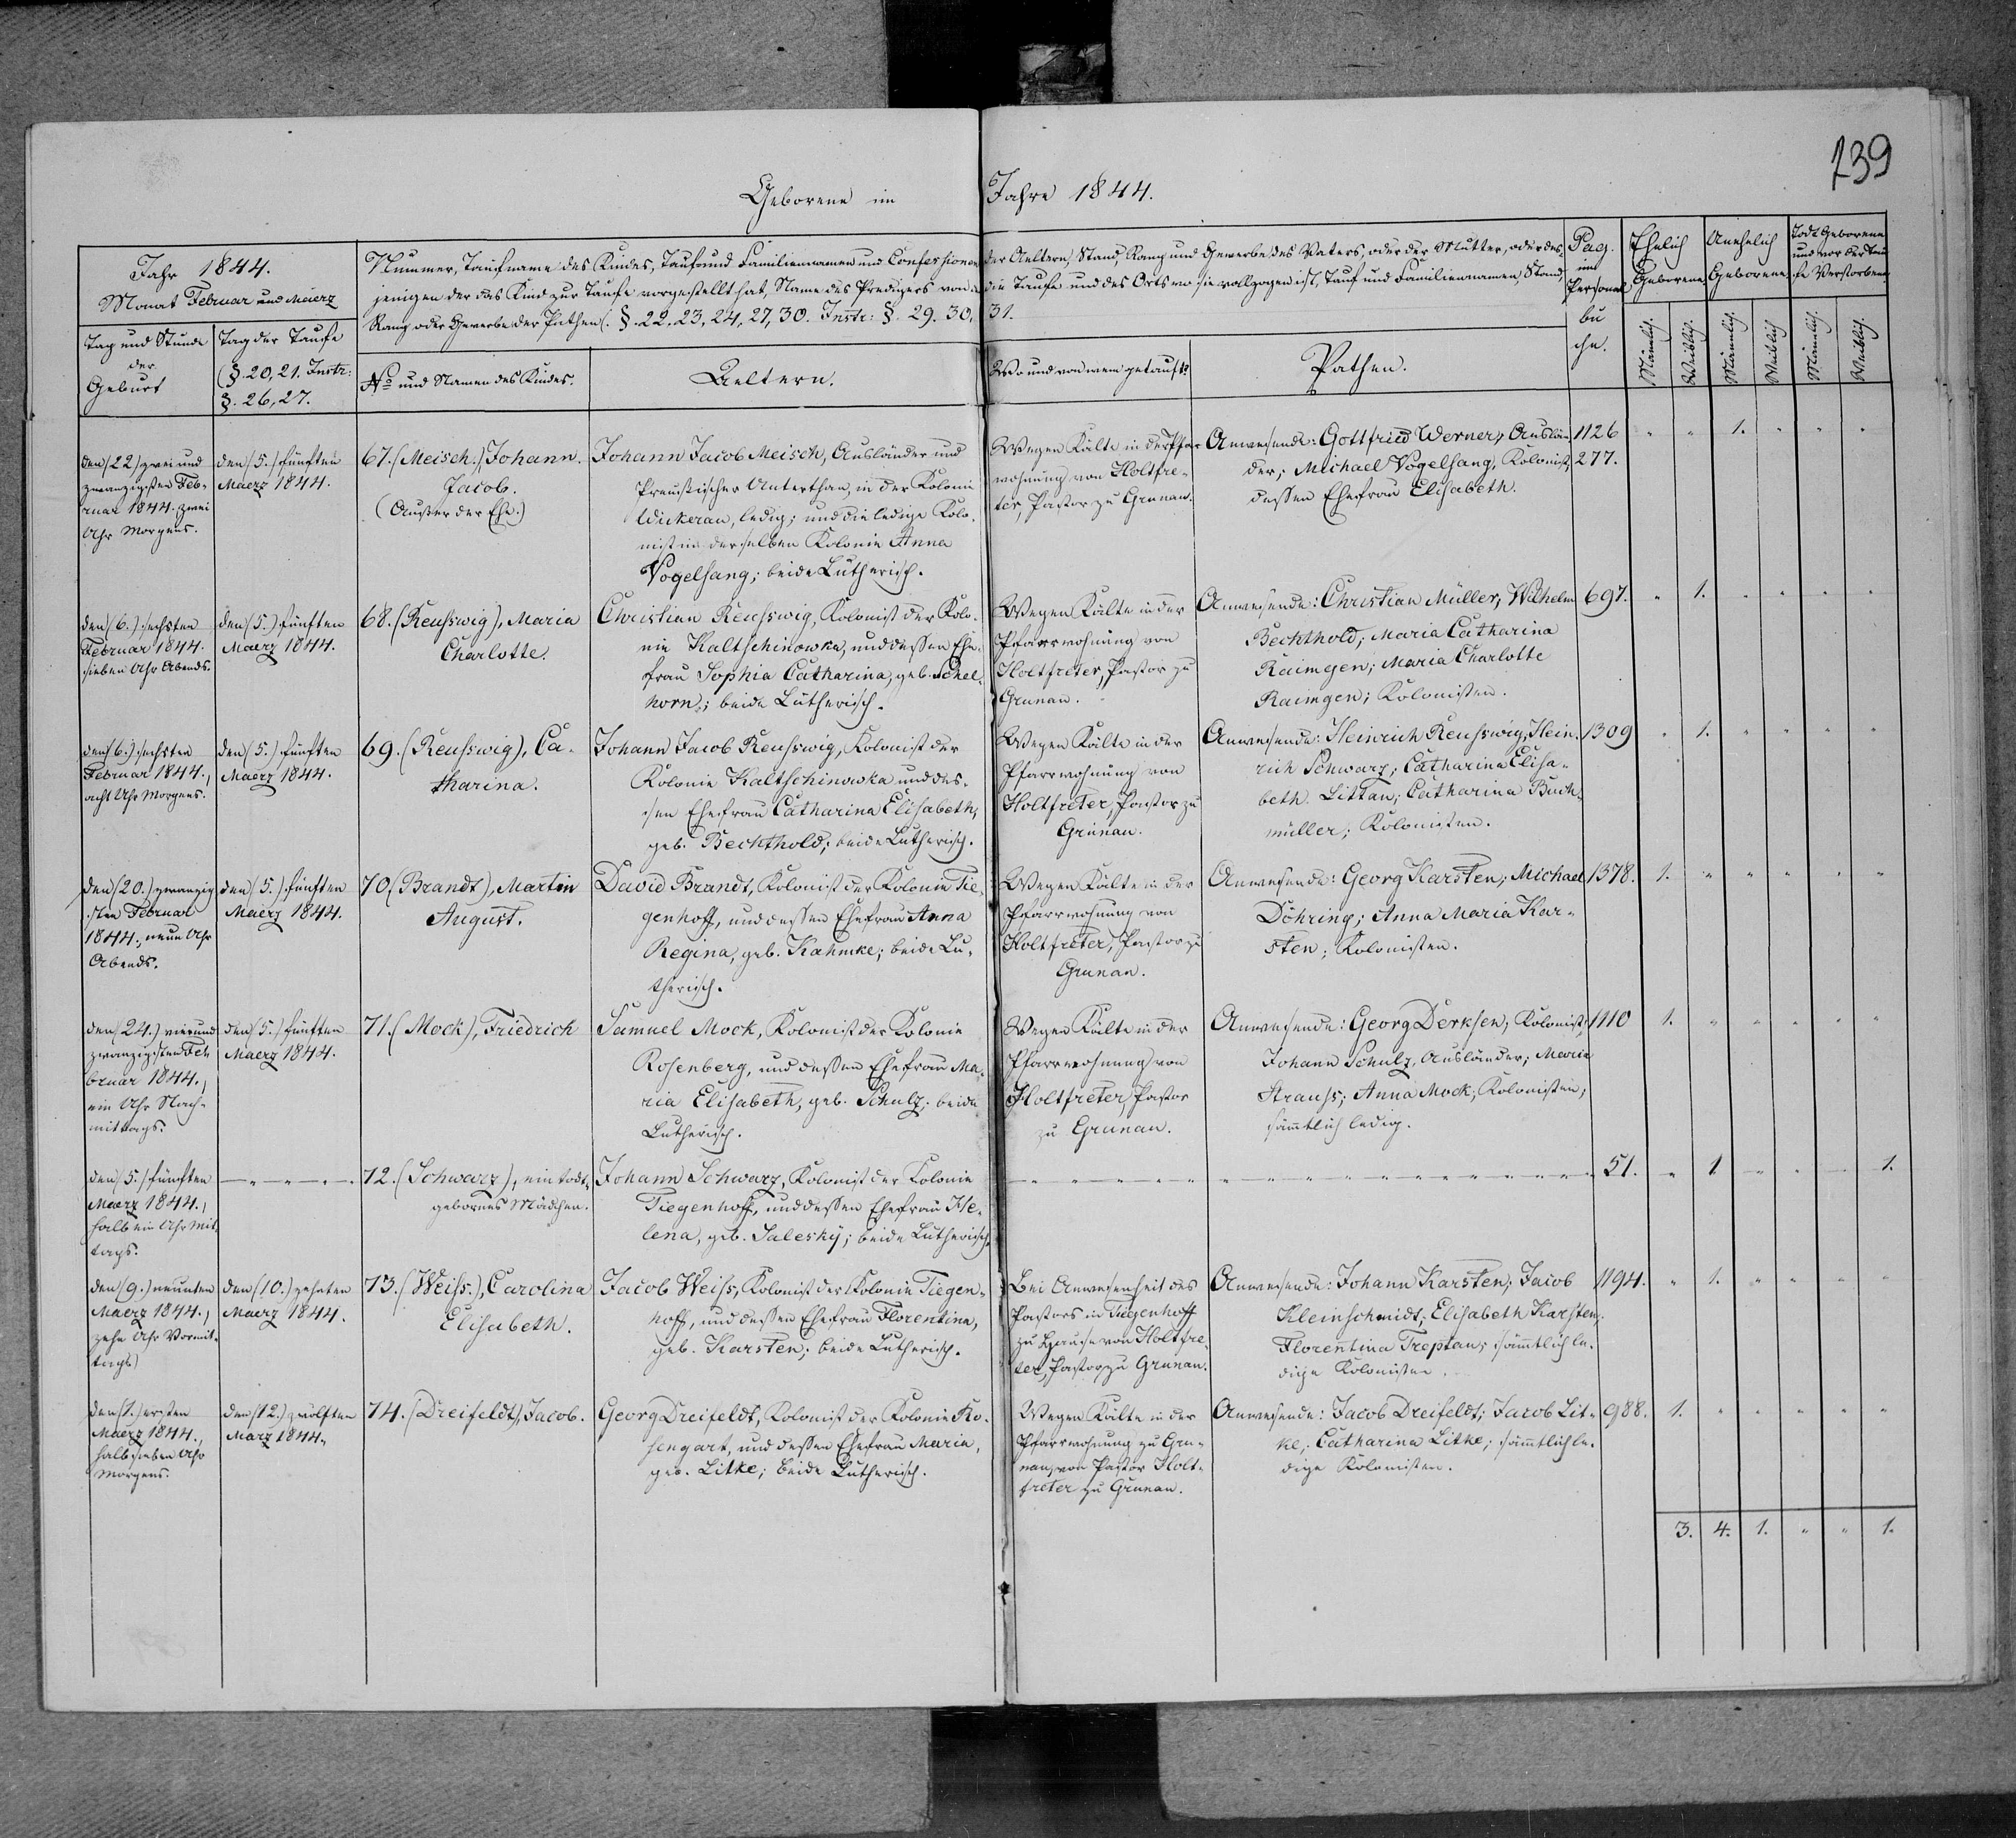 239
Geborene im Jahre 1844.
Jahr 1844.
Monat Februar und Maerz
Tag und Stunde
der
Geburt
Tag der Taufe
(§. 20, 21. Instr:
§. 26, 27.
Nummer, Taufname des Kindes, Tauf und Familiennamen und Confessionen der Aeltern, Stand, Rang und Gewerbe des Vaters, oder der Mutter, oder des-
jenigen der das Kind zur Taufe vorgestellt hat, Name des Predigers von d die Taufe und des Orts wo sie vollzogen ist, Tauf und Familiennamen, Stand,
Rang oder Gewerbe der Pathen (. §. 22, 23, 24, 27, 30. Instr: §. 29. 30. 31.
No und Namen des Kindes.
Aeltern.
Wo und von wem getauft?
Pathen.
Pag.
im
Personal
bu
che.
Ehelich
Geborene
Unehelich
Geborene
Todt Geborene
und vor der Tau
fe Verstorbene
Männlich.
Weiblich.
Männlich.
Weiblich
Männlich.
Weiblich.
den (22) zwei und
zwanzigsten Feb-
ruar 1844. zwei
Uhr Morgens.
den (5.) fünften
Maerz 1844.
67. (Meisch.) Johann
Jacob.
(Außer der Ehe.)
Johann Jacob Meisch, Ausländer und
Preußischer Unterthan, in der Kolonie
Wickerau, ledig; und die ledige Kolo-
nistin derselben Kolonie Anna
Vogelsang; beide Lutherisch.
Wegen Kälte in der Pfar-
wohnung von Holtfre-
ter, Pastor zu Grunau.
Anwesende: Gottfried Werner, Auslän-
der; Michael Vogelsang, Kolonist,
dessen Ehefrau Elisabeth.
1126
277.
" " 1. " " "
den (6.) sechsten
Februar 1844.
sieben Uhr Abends.
den (5.) fünften
Maerz 1844.
68. (Reusswig), Maria
Charlotte.
Christian Reusswig, Kolonist der Kolo-
nie Kaltschinowka, und dessen Ehe-
frau Sophia Catharina, geb. Schel-
horn; beide Lutherisch.
Wegen Kälte in der
Pfarrwohnung von
Holtfreter, Pastor zu
Grunau.
Anwesende: Christian Müller, Wilhelm
Bechthold; Maria Catharina
Raimgen; Maria Charlotte
Raimgen; Kolonisten.
697.
" 1. " " " "
den (6.) sechsten
Februar 1844.,
acht Uhr Morgens.
den (5.) fünften
Maerz 1844.
69. (Reusswig), Ca-
tharina.
Johann Jacob Reusswig, Kolonist der
Kolonie Kaltschinowka und des-
sen Ehefrau Catharina Elisabeth,
geb. Bechthold; beide Lutherisch.
Wegen Kälte in der
Pfarrwohnung von
Holtfreter, Pastor zu
Grunau.
Anwesende: Heinrich Reusswig, Hein-
rich Schwarz; Catharina Elisa-
beth Littau; Catharina Buch-
müller; Kolonisten.
1309
" 1. " " " "
den (20.) zwanzig
sten Februar
1844., neun Uhr
Abends.
den (5.) fünften
Maerz 1844.
70. (Brandt), Martin
August.
David Brandt, Kolonist der Kolonie Tie-
genhoff, und dessen Ehefrau Anna
Regina, geb. Kahmke; beide Lu-
therisch.
Wegen Kälte in der
Pfarrwohnung von
Holtfreter, Pastor zu
Grunau.
Anwesende: Georg Karsten; Michael
Döhring; Anna Maria Kar-
sten; Kolonisten.
1378.
1. " " " " "
den (24.) vier und
zwanzigsten Feb
bruar 1844.,
ein Uhr Nach-
mittags.
den (5.) fünften
Maerz 1844.
71. (Mock), Friedrich
Samuel Mock, Kolonist der Kolonie
Rosenberg, und dessen Ehefrau Ma-
ria Elisabeth, geb. Schulz; beide
Lutherisch.
Wegen Kälte in der
Pfarrwohnung von
Holtfreter, Pastor
zu Grunau.
Anwesende: Georg Derksen, Kolonist;
Johann Schulz, Ausländer; Maria
Strauss; Anna Mock; Kolonisten;
sämtlich ledig.
1110
1. " " " " "
den (5.) fünften
Maerz 1844.,
halb ein Uhr Mit
tags.
72. (Schwarz), ein todt-
gebornes Mädchen.
Johann Schwarz, Kolonist der Kolonie
Tiegenhoff, und dessen Ehefrau He-
lena, geb. Salesky; beide Lutherisch.
51.
" 1 " " " 1.
den (9.) neunten
Maerz 1844.,
zehn Uhr Vormit-
tags)
den (10.) zehnten
Maerz 1844.
73. (Weiss.), Carolina
Elisabeth.
Jacob Weiss, Kolonist der Kolonie Tiegen-
hoff, und dessen Ehefrau Florentina,
geb. Karsten; beide Lutherisch.
Bei Anwesenheit des
Pastors in Tiegenhoff
zu Hause von Holtfre-
ter, Pastor zu Grunau.
Anwesende: Johann Karsten; Jacob
Kleinschmidt; Elisabeth Karsten;
Florentina Treptau; sämtlich le-
dige Kolonisten.
1194.
" 1. " " " "
den (1.) ersten
Maerz 1844.,
halb sieben Uhr
Morgens.
den (12.) zwölften
Marz 1844.
74. (Dreifeldt), Jacob.
Georg Dreifeldt, Kolonist der Kolonie Ro-
sengart, und dessen Ehefrau Maria,
geb. Litke; beide Lutherisch.
Wegen Kälte in der
Pfarrwohnung zu Gru-
nau, von Pastor Holt-
freter zu Grunau.
Anwesende: Jacob Dreifeldt; Jacob Lit-
ke; Catharina Litke; sämtlich le-
dige Kolonisten.
988.
1. " " " " "
3. 4. 1. " " 1.